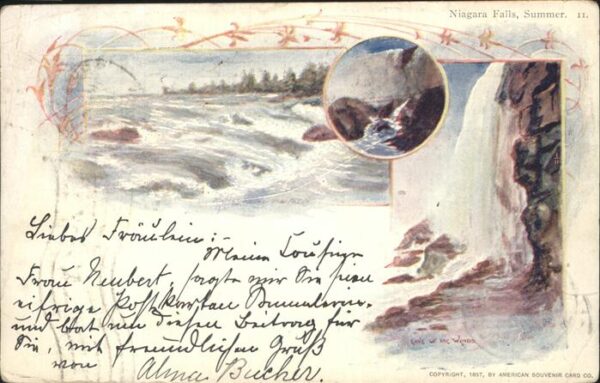 Niagara Falls, Summer. 11.
Liebes Fräulein:
Meine Cousine
Frau Neubert sagte mir Sie seien
eifrige Postkarten Sammlerin,
und bat um diesen Beitrag für
Sie, mit freundlichen Gruß
von Alma Bucher.
CAVE OF THE WINDS
COPYRIGHT, 1897, BY AMERICAN SOUVENIR CARD CO.